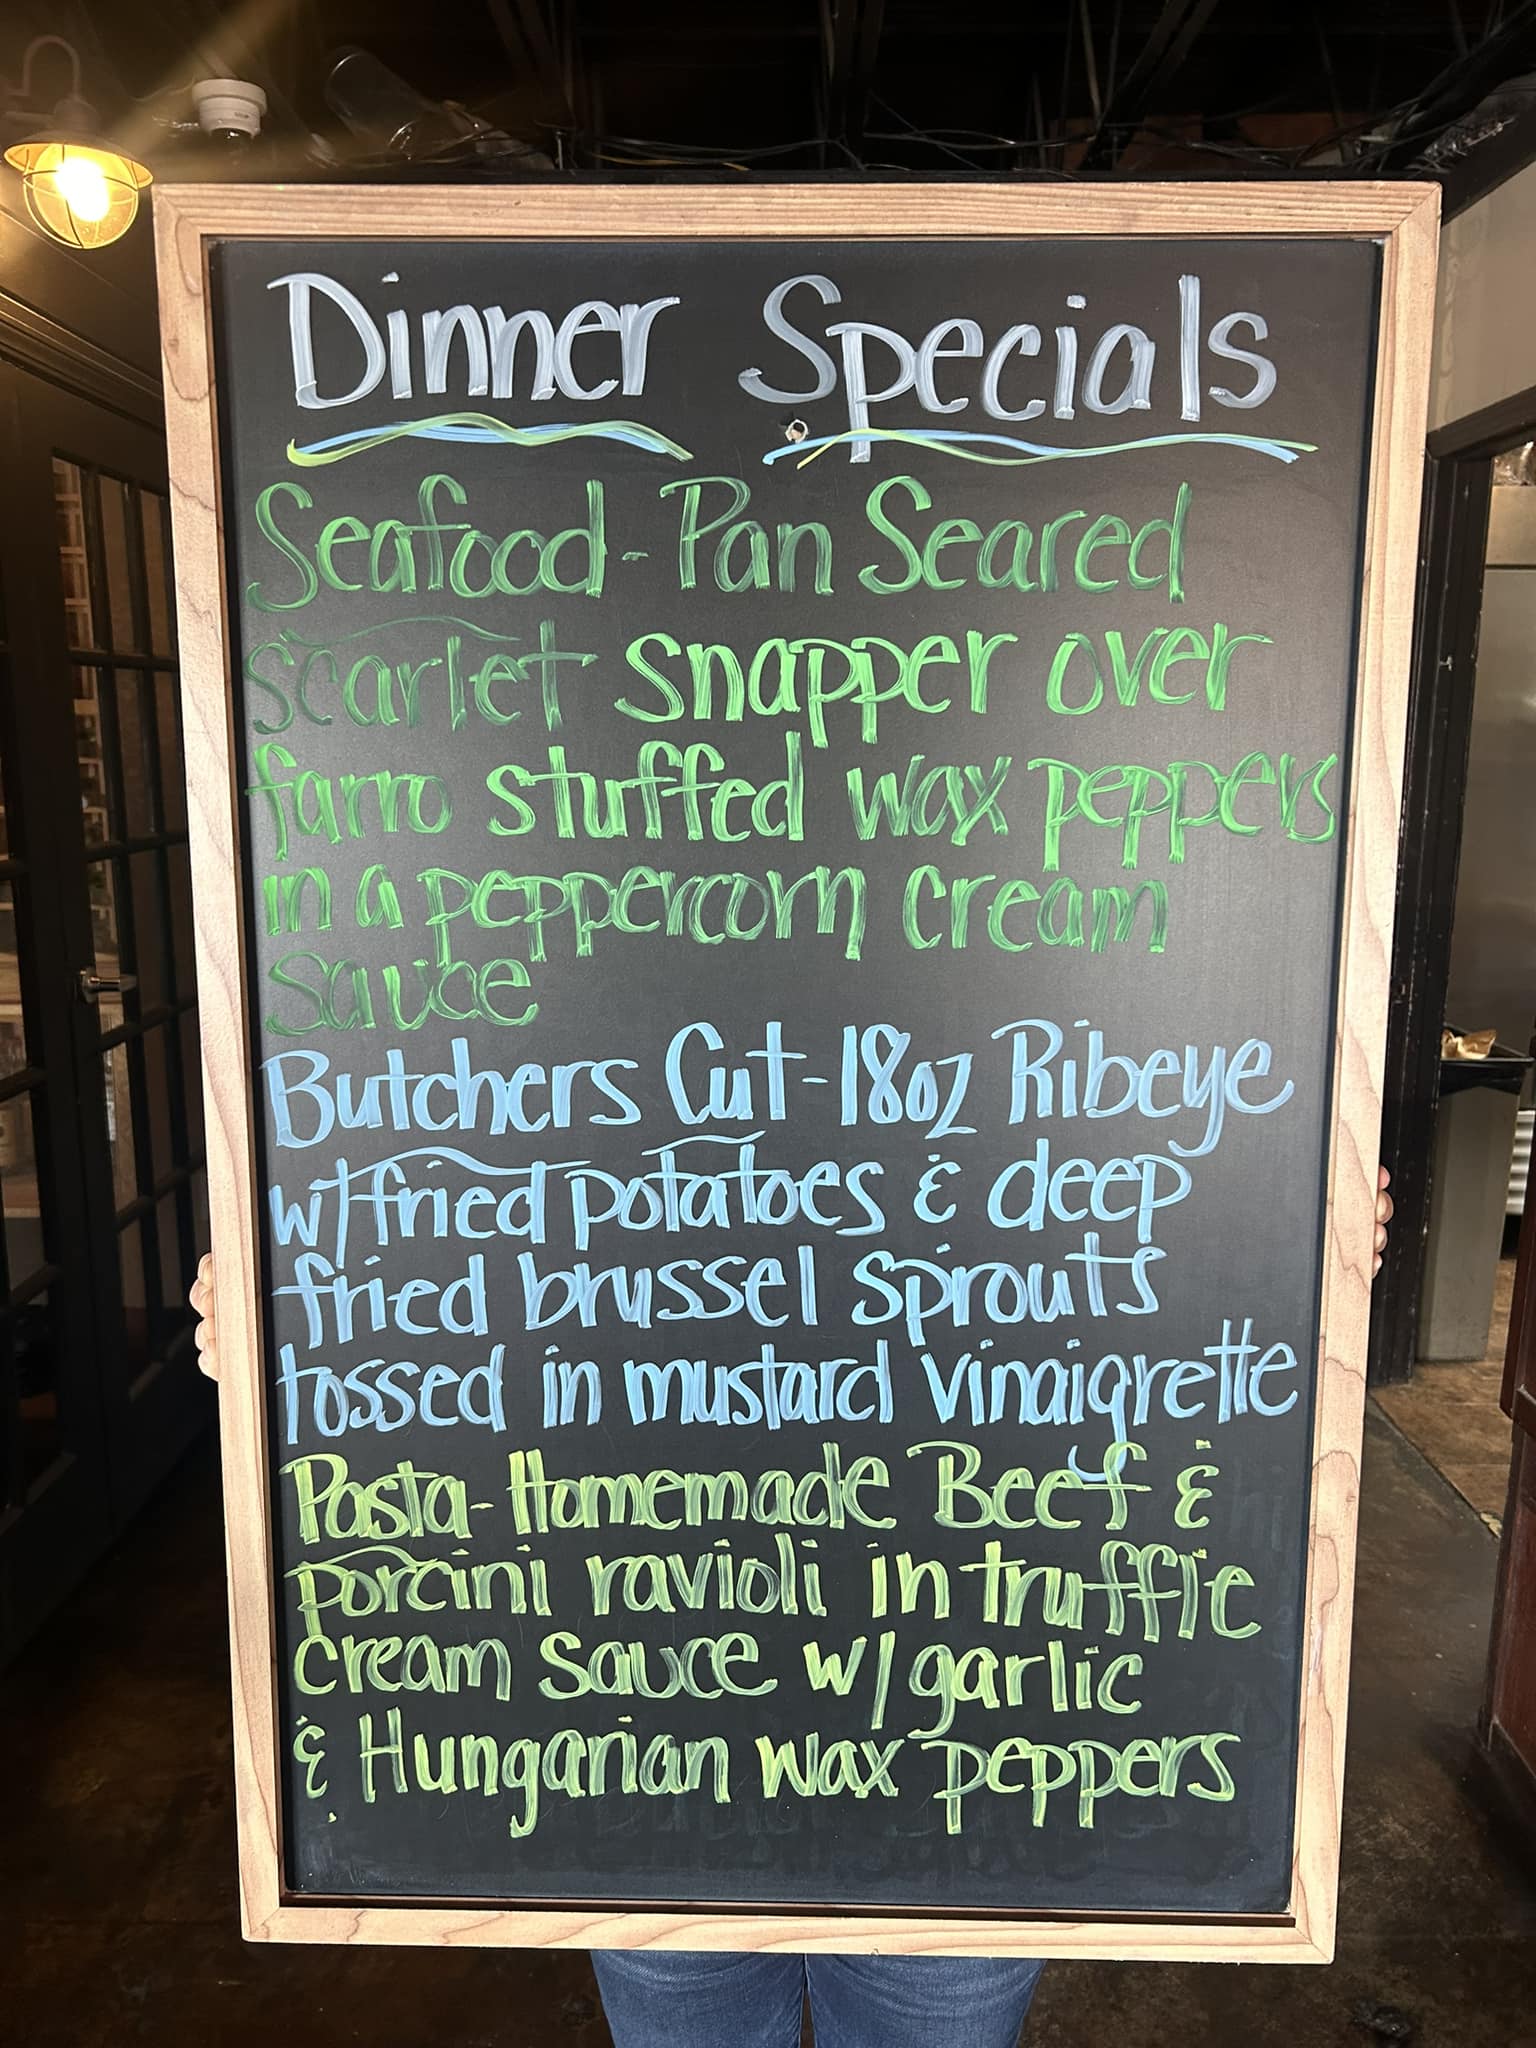 Dinner Specials
Seafood - Pan Seared
scarlet snapper over
farro stuffed wax peppers
in a peppercorn cream
sauce
Butchers Cut - 18oz Ribeye
w/ fried potatoes & deep
fried brussel sprouts
tossed in mustard vinaigrette
Pasta - Homemade Beef &
porcini ravioli in truffle
cream sauce w/ garlic
& Hungarian wax peppers